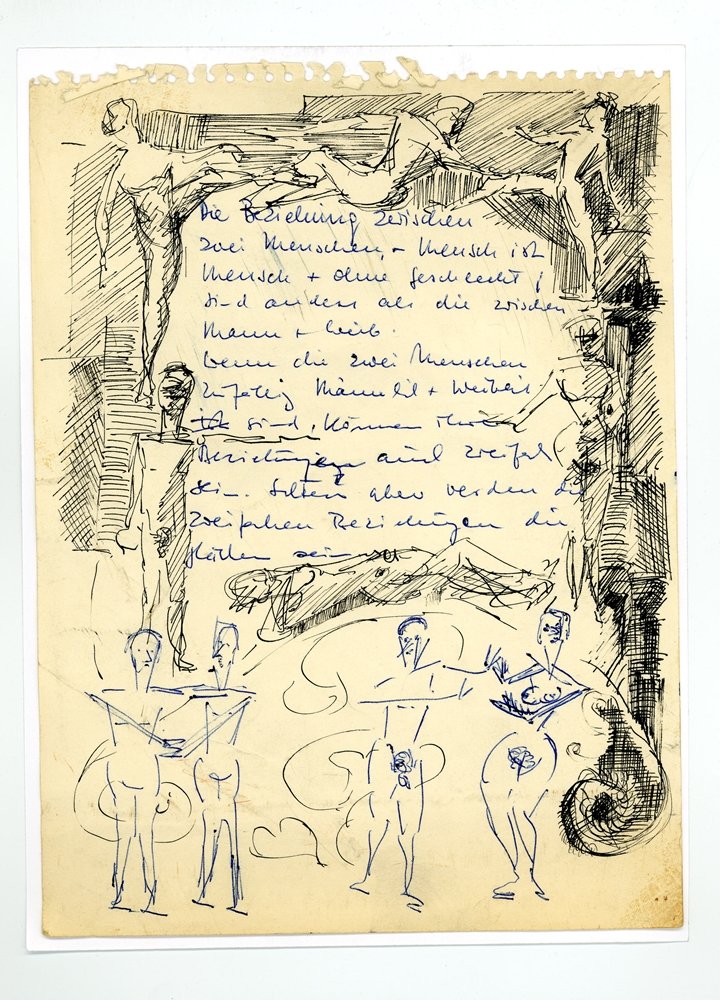 Die Beziehung zwischen
zwei Menschen, + Mensch ist
Mensch + ohne Geschlecht,
sind anders als die zwischen
Mann + Weib.
Wenn die zwei Menschen
zufällig + Weiblich
sind, können ihre
Beziehungen auch zweifach
sein. Selten aber werden die
zweifachen Beziehungen die
sein